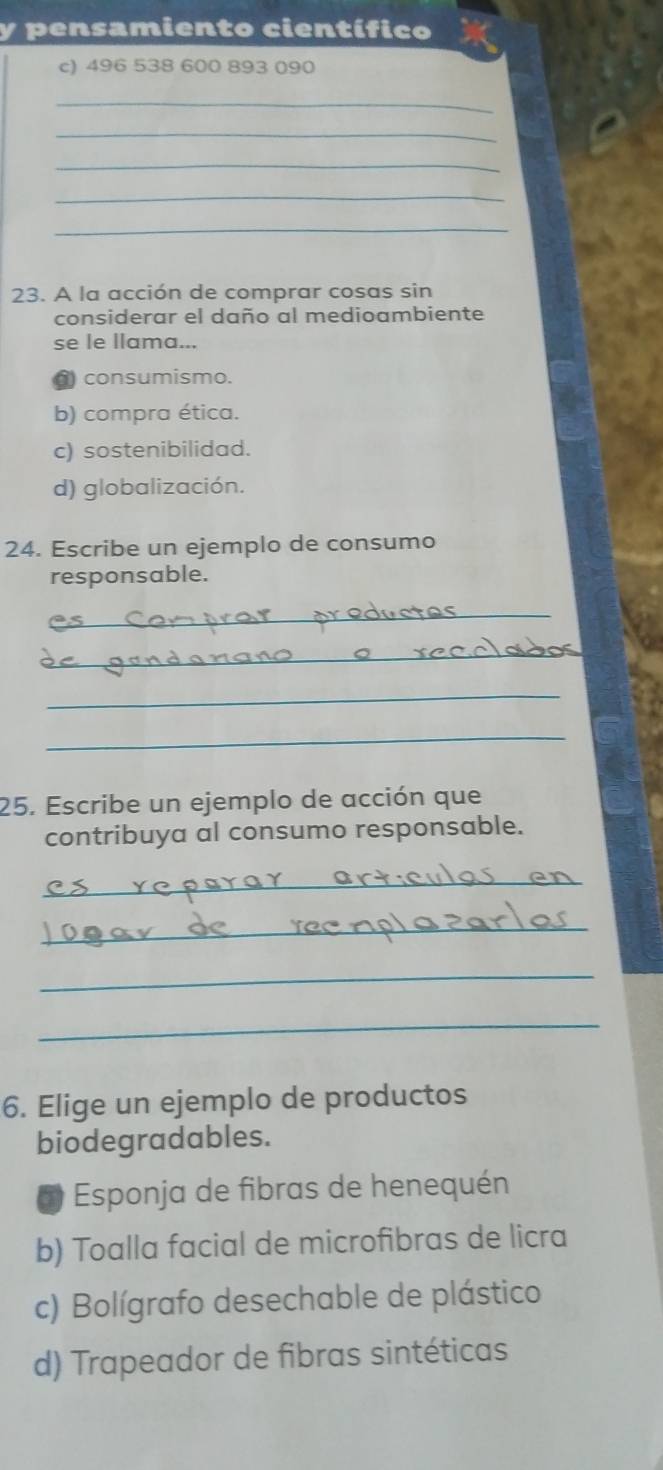 y pensamiento científico
c) 496 538 600 893 090
23. A la acción de comprar cosas sin
considerar el daño al medioambiente
se le llama...
a) consumismo.
b) compra ética.
c) sostenibilidad.
d) globalización.
24. Escribe un ejemplo de consumo
responsable.
es comprar productos
de gandanano o recclabos
25. Escribe un ejemplo de acción que
contribuya al consumo responsable.
es reparar articulos en
logar de reenplazarlos
6. Elige un ejemplo de productos
biodegradables.
Esponja de fibras de henequén
b) Toalla facial de microfibras de licra
c) Bolígrafo desechable de plástico
d) Trapeador de fibras sintéticas